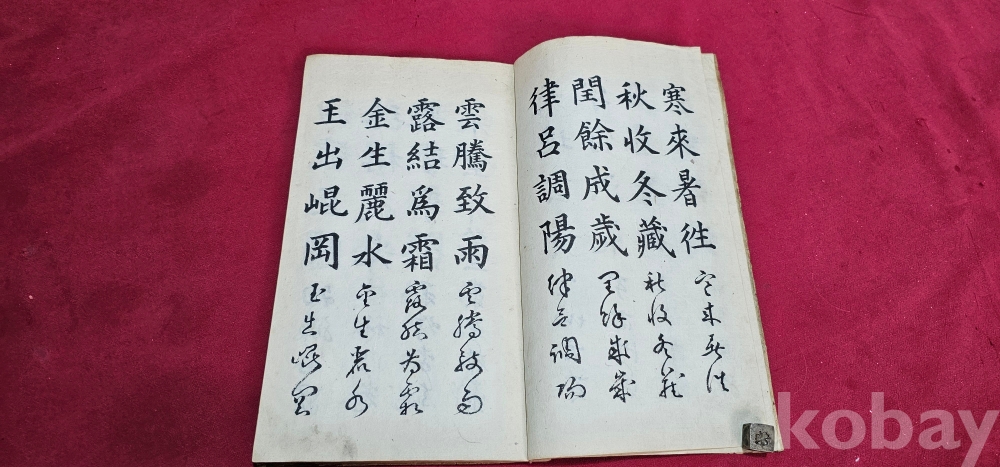 寒來暑徃 寒来暑往
秋收冬藏 秋收冬藏
閏餘成歲 閏餘成歲
律呂調陽 律呂調陽
雲騰致雨 雲騰致雨
露結爲霜 露結为霜
金生麗水 金生麗水
王出崐岡 玉出崐岡
kobay